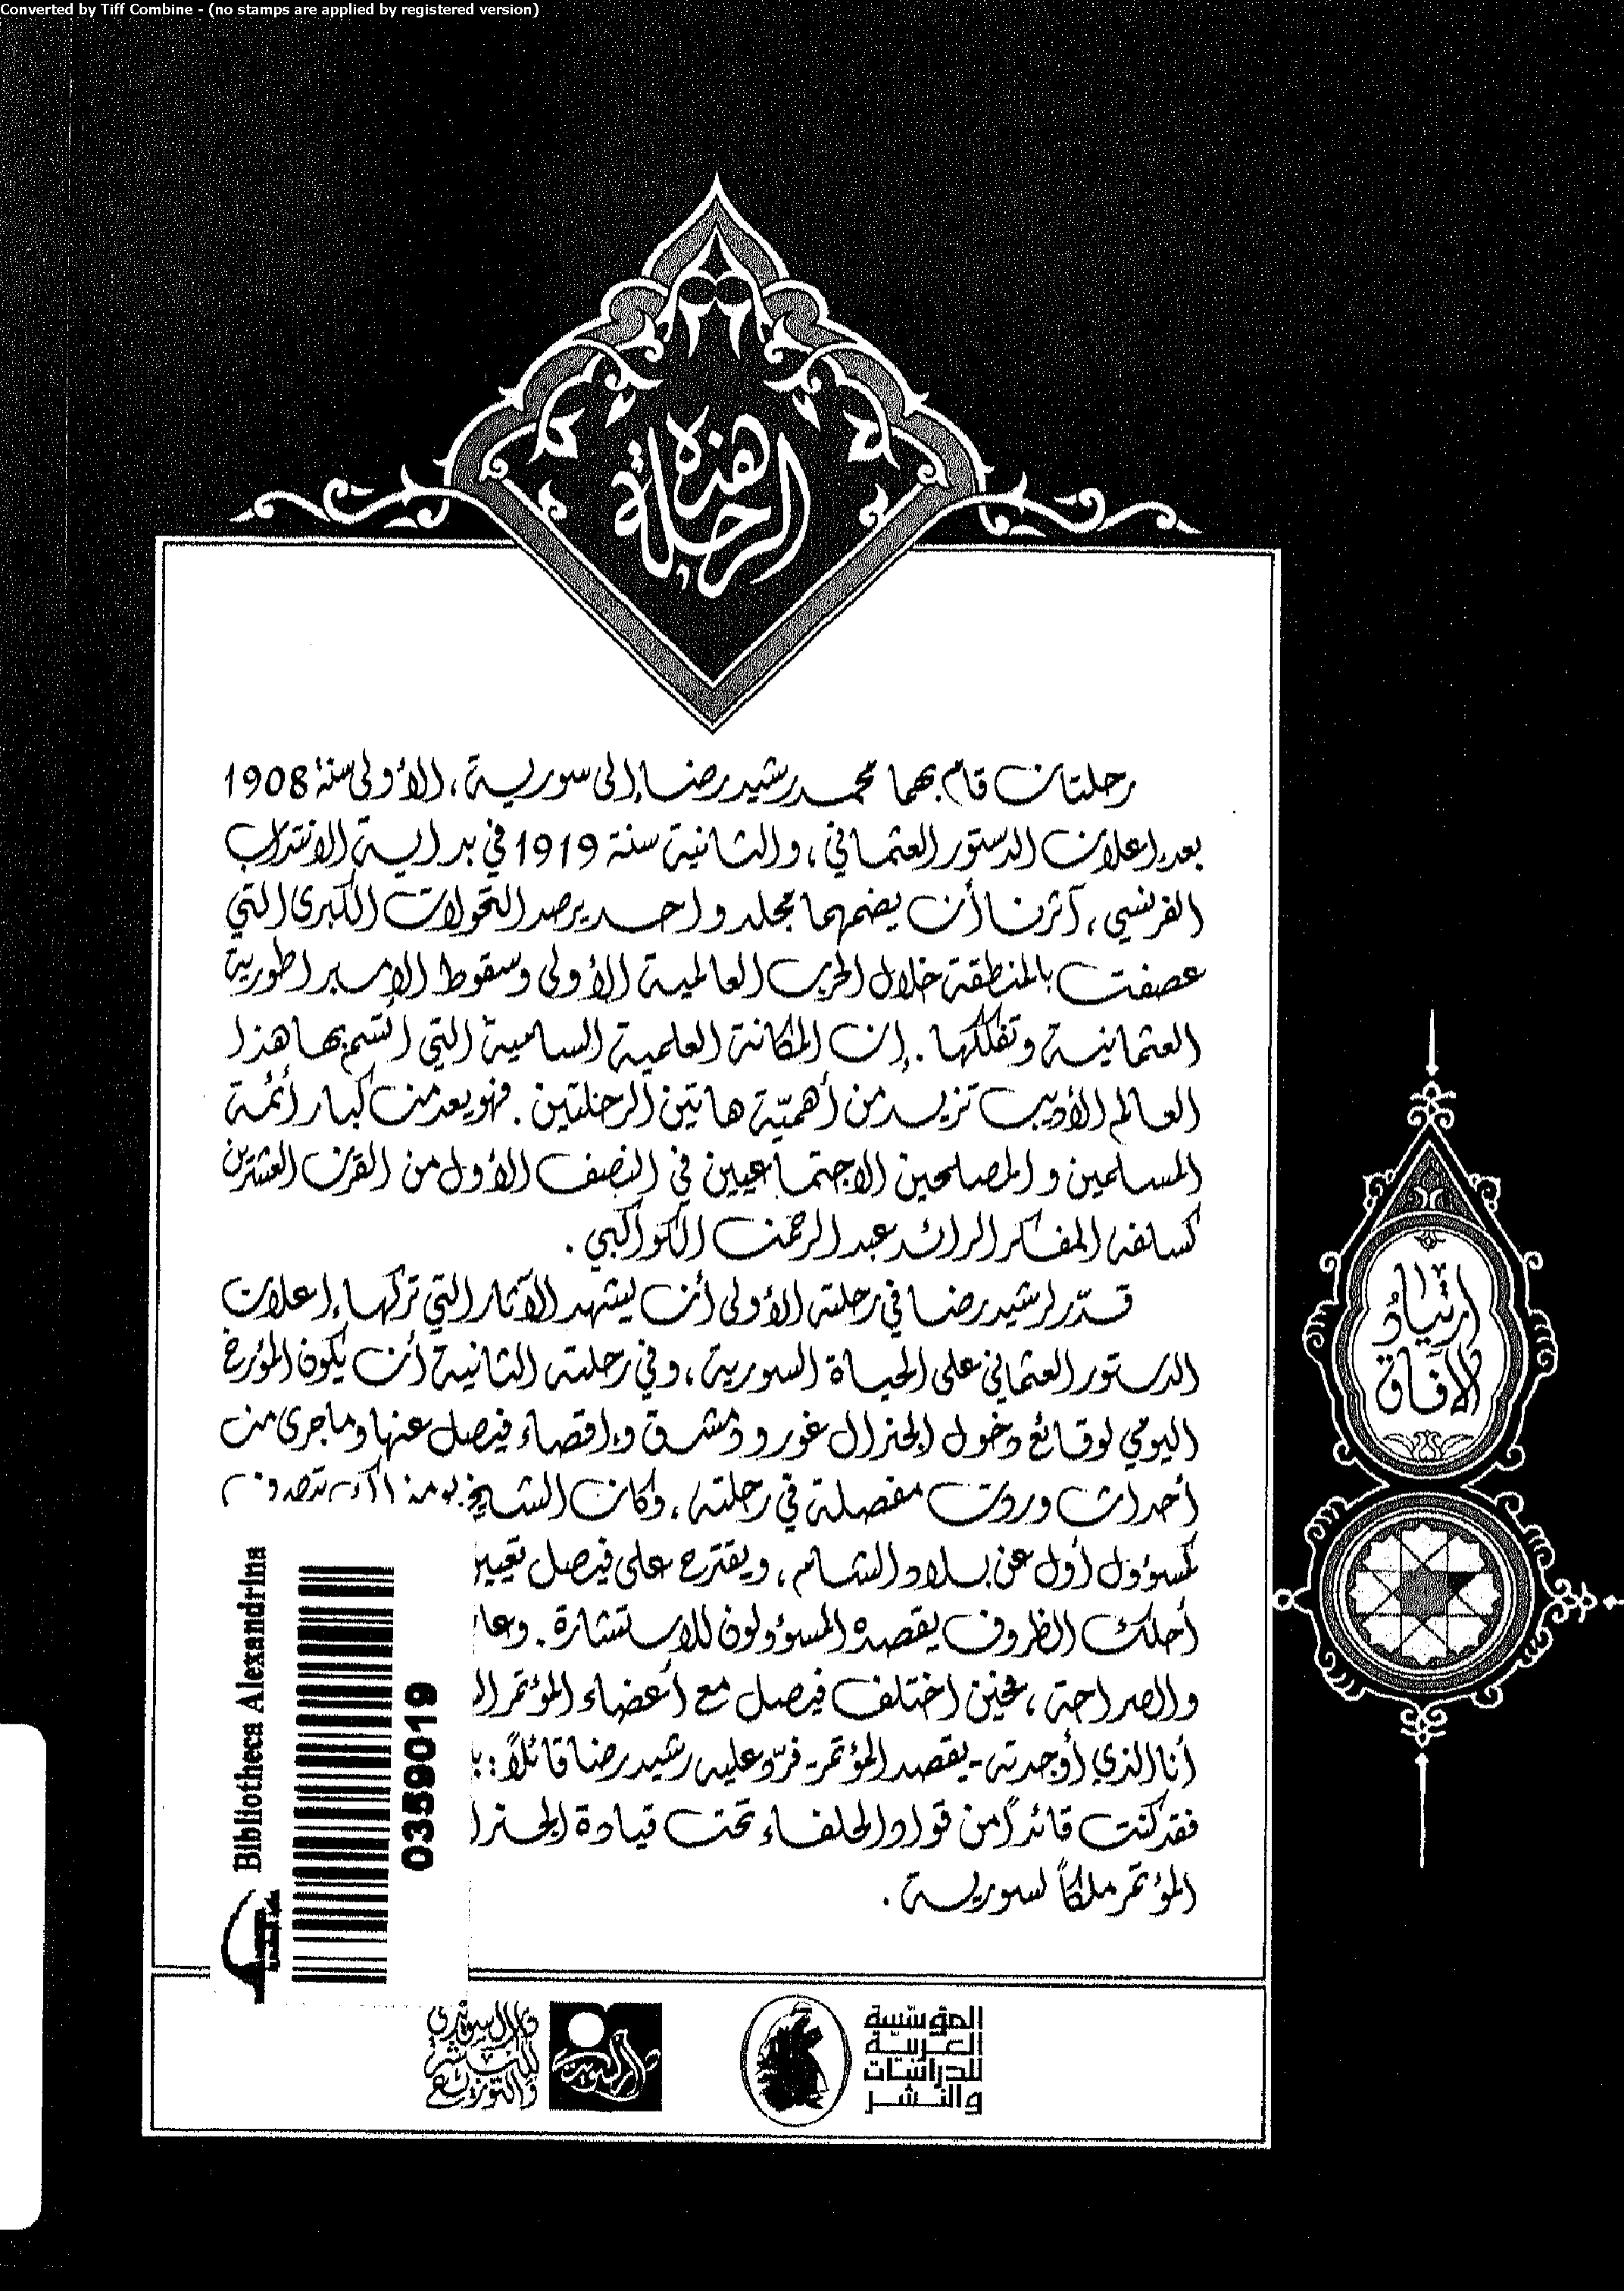 Converted by Tiff Combine - (no stamps are applied by registered version)
هذه
الرحلة
رحلتان قام بهما محمد رشيد رضا إلى سورية، الأولى سنة 1908
بعد إعلان الدستور العثماني، والثانية سنة 1919 في بداية الانتداب
الفرنسي، آثرنا أن يضمهما مجلد واحد يرصد التحولات الكبرى التي
عصفت بالمنطقة خلال الحرب العالمية الأولى وسقوط الإمبراطورية
العثمانية وتفككها. إن المكانة العلمية السامية التي اتسم بها هذا
العالم الأديب تزيد من أهميّة هاتين الرحلتين. فهو يعد من كبار أئمة
المسلمين والمصلحين الاجتماعيين في النصف الأول من القرن العشرين
كسلفه المفكر الرائد عبد الرحمن الكواكبي.
قدّر لرشيد رضا في رحلته الأولى أن يشهد الآثار التي تركها إعلان
الدستور العثماني على الحياة السورية، وفي رحلته الثانية أن يكون المؤرخ
اليومي لوقائع دخول الجنرال غورو دمشق وإقصاء فيصل عنها وما جرى من
أحداث وردت مفصلة في رحلته، وكان الشيخ يومذاك
كمسؤول أول عن بلاد الشام، ويقترح على فيصل تعيير
أحلك الظروف يقصده المسؤولون للاستشارة. وعا
والصراحة، فحين اختلف فيصل مع أعضاء المؤتمر ال
أنا الذي أوجدته - يقصد المؤتمر - فردّ عليه رشيد رضا قائلاً: ب
فقد كنت قائداً من قواد الحلفاء تحت قيادة الجنرا
المؤتمر ملكاً لسورية.
ارتياد
الآفاق
Bibliotheca Alexandrina
0359019
المؤسسة
العربية
للدراسات
والنشر
دار السويدي
للنشر
والتوزيع